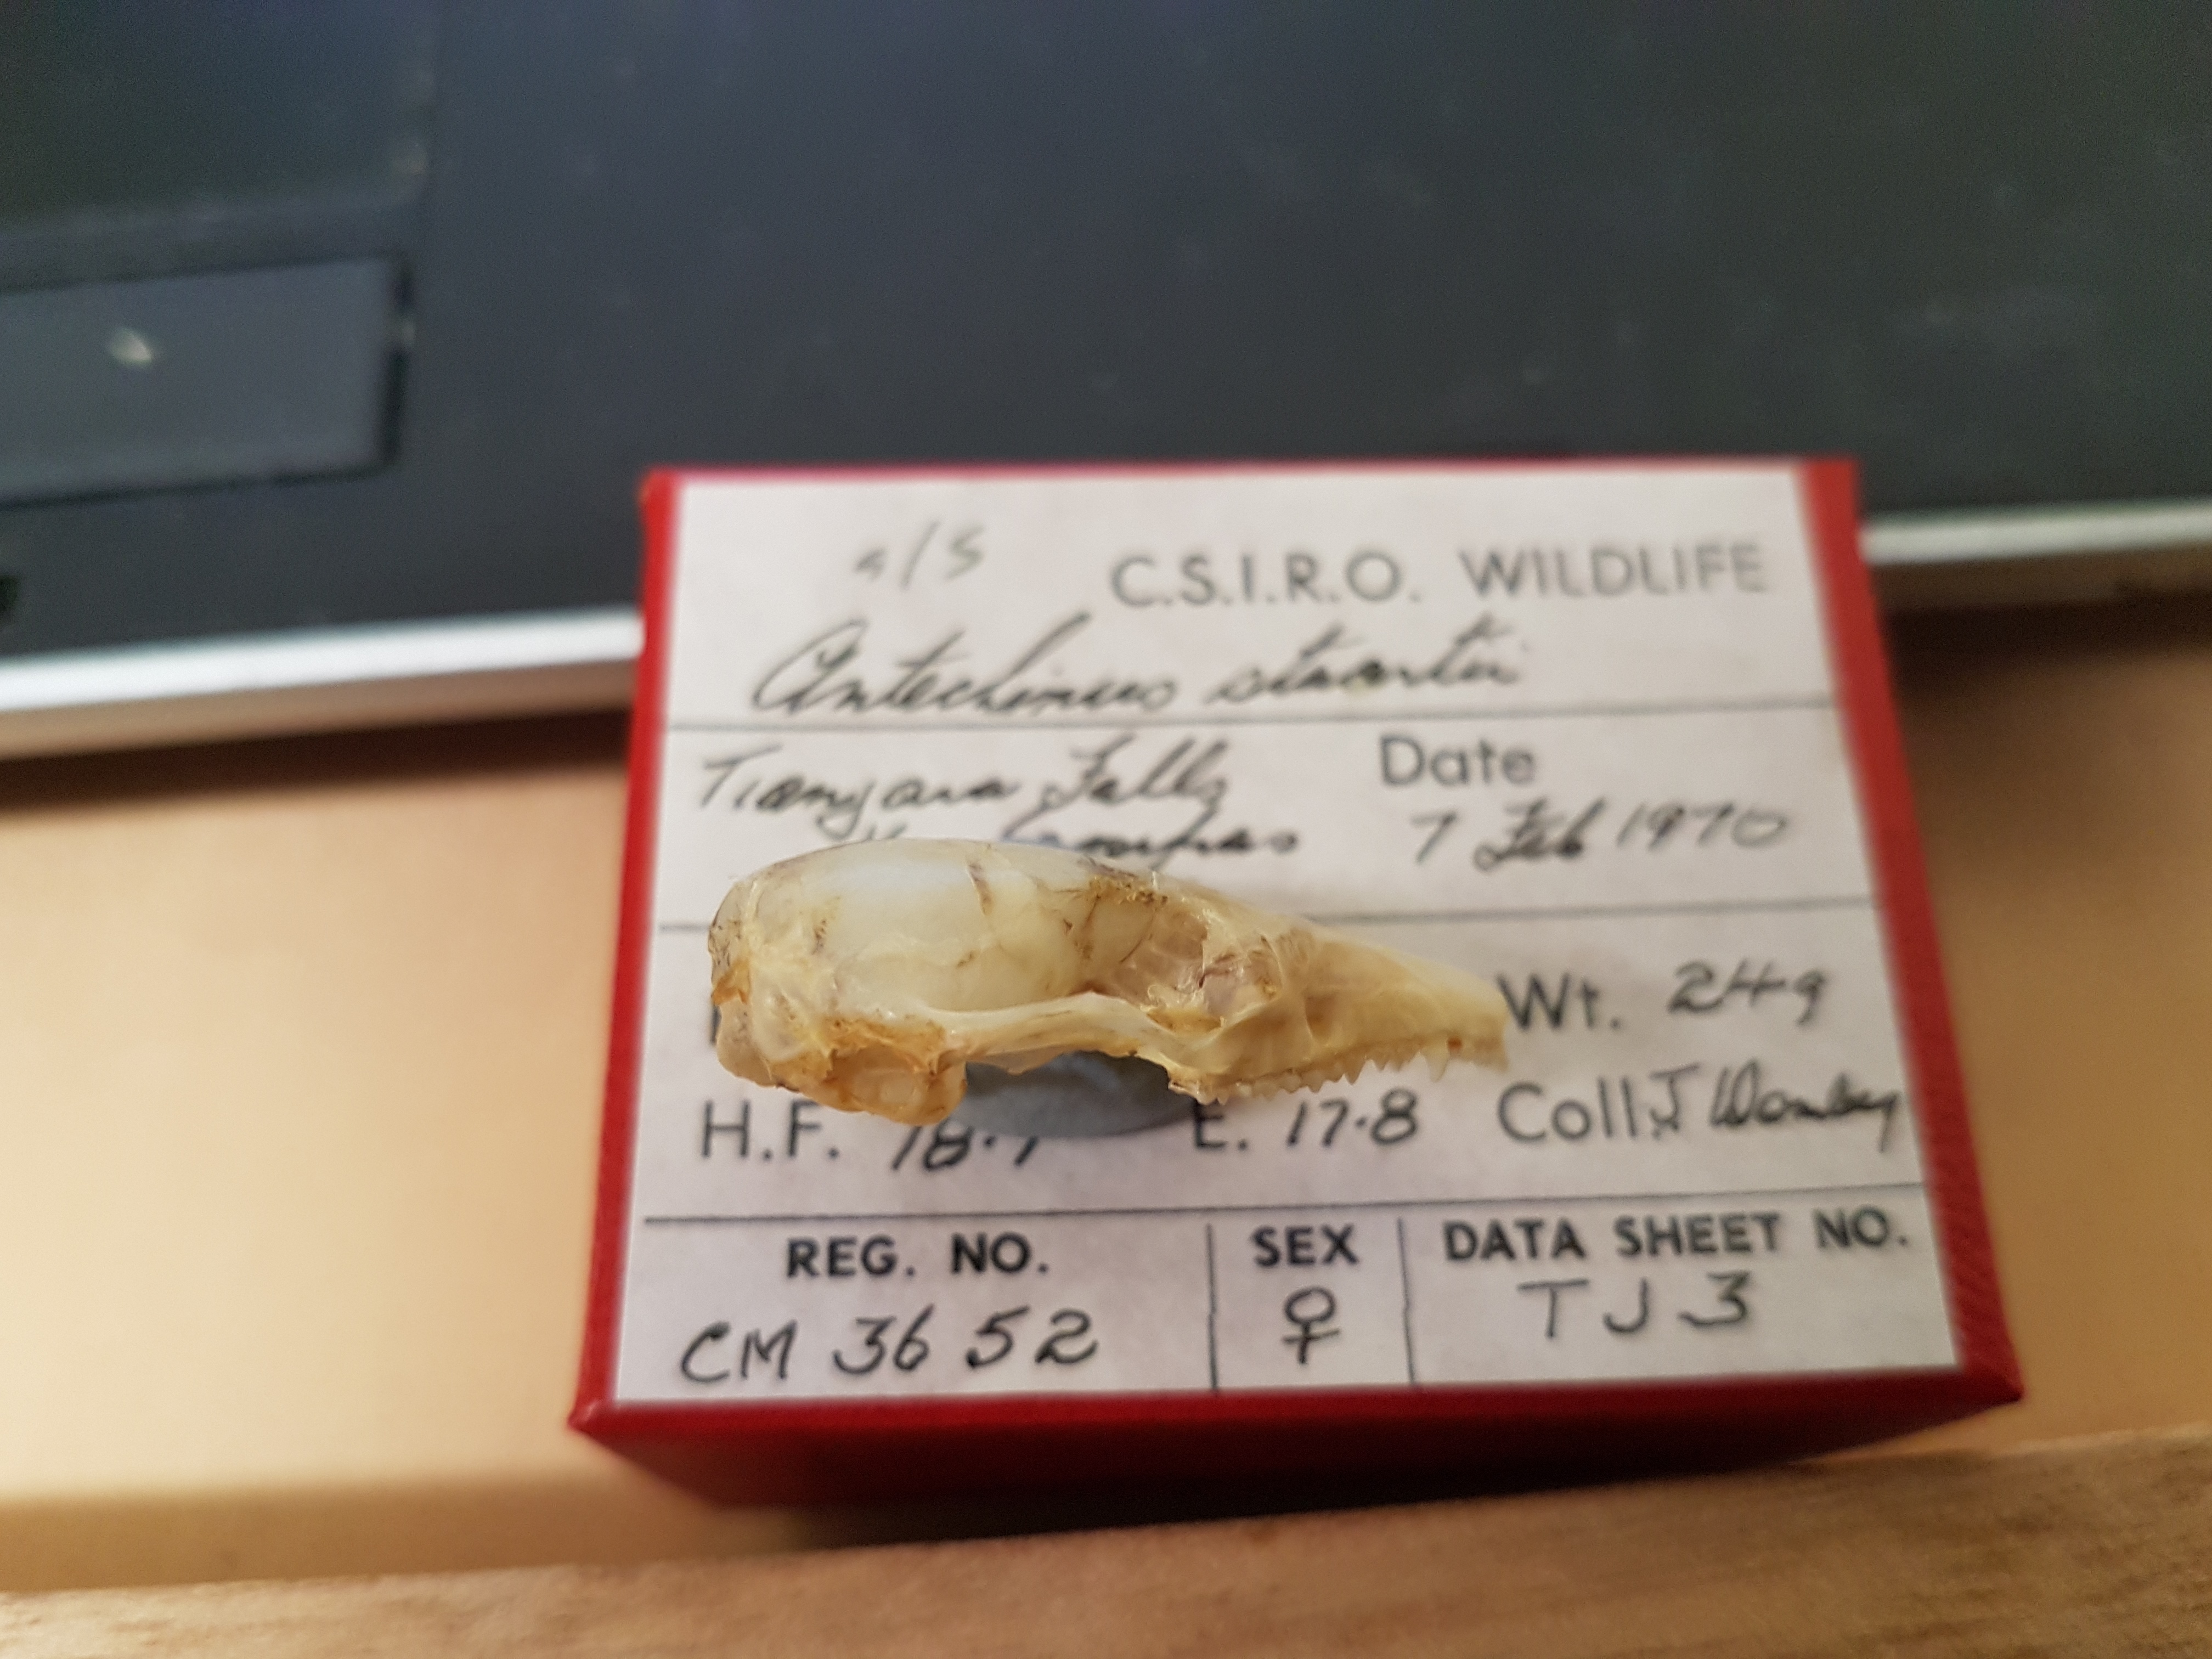 4/5 C.S.I.R.O. WILDLIFE
Antechinus stuartii
Date
7 Feb 1970
Wt. 24g
H.F. 18. E. 17.8 Coll. J Wombey
REG. NO. SEX DATA SHEET NO.
CM 3652 ♀ TJ 3